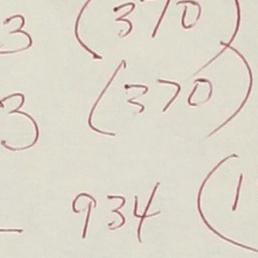 3 (370)
3 (370)
— 934 (1